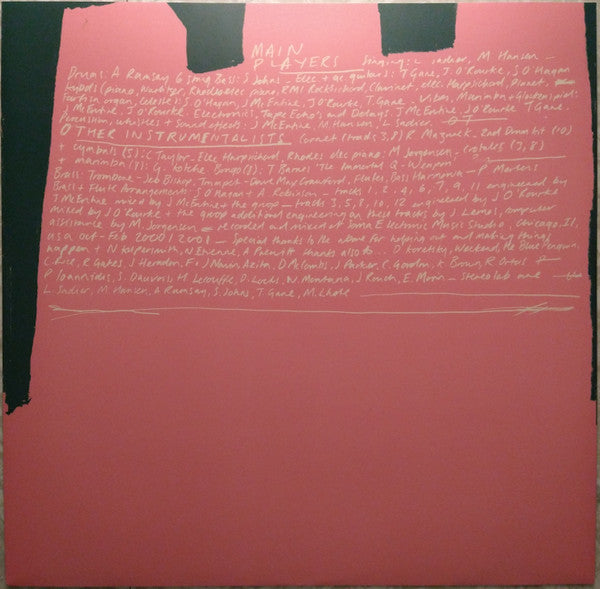 MAIN
PLAYERS Singing: L Sadier, M Hansen —
Drums: A Ramsay 6 string Bass: S Johns — Elec + ac guitars: T Gane, J O'Rourke, S O'Hagan
Keybds (piano, Wurlitzer, Rhodes elec piano, RMI Rocksichord, Clavinet, elec Harpsichord, Pianet,
Farfisa organ, Celeste): S O'Hagan, J McEntire, J O'Rourke, T Gane — Vibes, Marimba + Glockenspiel:
J McEntire, J O'Rourke. Electronics, Tape Echo's and Delays: J McEntire J O'Rourke T Gane.
Percussion, whistles + Sound effects: J McEntire, M Hansen, L Sadier
OTHER INSTRUMENTALISTS Cornet (tracks 3, 8) R Mazurek — 2nd Drum kit (10)
+ cymbals (5): C Taylor — Elec Harpsichord, Rhodes elec piano: M Jorgensen — crotales (7, 8)
+ marimba (8): G Kotche Bongo (8): T Barnes The Immortal Q — Winston
Brass: Trombone — Jeb Bishop, Trumpet — Dave Max Crawford, Flutes, Bass Harmonica — P Mertens
Brass + Flute Arrangements: S O'Hagan + A Robinson — tracks 1, 2, 4, 6, 7, 9, 11 engineered by
J McEntire mixed by J McEntire + the groop — tracks 3, 5, 8, 10, 12 engineered by J O'Rourke
mixed by J O'Rourke + the groop additional engineering on these tracks by J Lemos, computer
assistance by M. Jorgensen — recorded and mixed at Soma Electronic Music Studio, Chicago, Il,
USA Oct – Feb 2000/2001 — Special thanks to the above for helping out and making things
happen + N Kaspersmith, N Etienne, A Prewitt thanks also to.. D Forestby, Weekend, The Blue Penguin,
C Rice, R Gates, J Herndon, F + J Navin, Azita, D McCombs, J Parker, C Gordon, K Brown, R Ortes
P Ioannidis, S Dauvois, H. Lecouffe, D. Locks, W. Montana, J Rauch, E. Morin — stereolab are —
L. Sadier, M. Hansen, A Ramsay, S. Johns, T Gane, M. Lhote